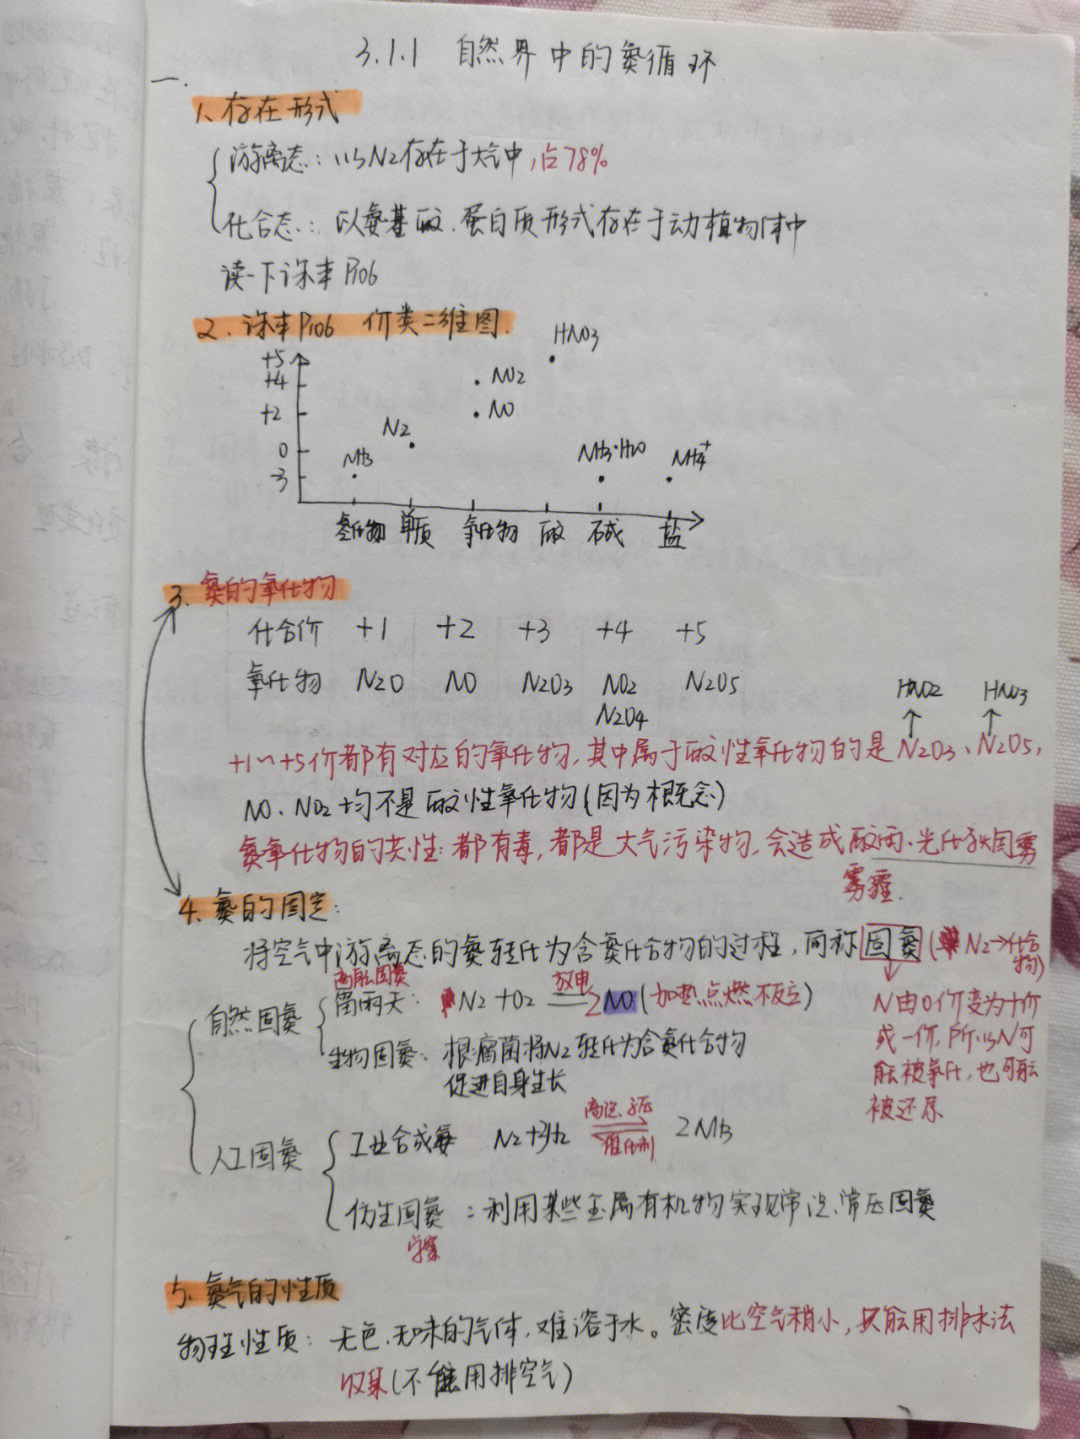 3.1.1 自然界中的氮循环
一.
1、存在形式
游离态：以N2存在于大气中,占78%
化合态：以氨基酸、蛋白质形式存在于动植物体中
读一下课本P106
2. 课本P106 价类二维图.
HNO3
+5
+4 NO2
+2 NO
N2
0 NH3 NH3·H2O NH4+
-3
氢化物 单质 氧化物 酸 碱 盐
3. 氮的氧化物
化合价 +1 +2 +3 +4 +5
氧化物 N2O NO N2O3 NO2 N2O5
N2O4
HNO2 HNO3
+1~+5价都有对应的氧化物,其中属于酸性氧化物的是N2O3、N2O5,
NO、NO2均不是酸性氧化物(因为概念)
氮氧化物的共性:都有毒,都是大气污染物,会造成酸雨、光化学烟雾
雾霾.
4. 氮的固定:
将空气中游离态的氮转化为含氮化合物的过程,简称固氮(N2→化合物)
高能固氮
自然固氮
雷雨天: N2+O2 放电 2NO(加热点燃不反应)
生物固氮: 根瘤菌将N2转化为含氮化合物
促进自身生长
N由0价变为+价
或-价,所以N可
能被氧化,也可能
被还原
人工固氮
工业合成氨 N2+3H2 高温、高压 催化剂 2NH3
仿生固氮:利用某些金属有机物实现常温、常压固氮
5. 氮气的性质
物理性质: 无色、无味的气体,难溶于水。密度比空气稍小,只能用排水法
收集(不能用排空气)